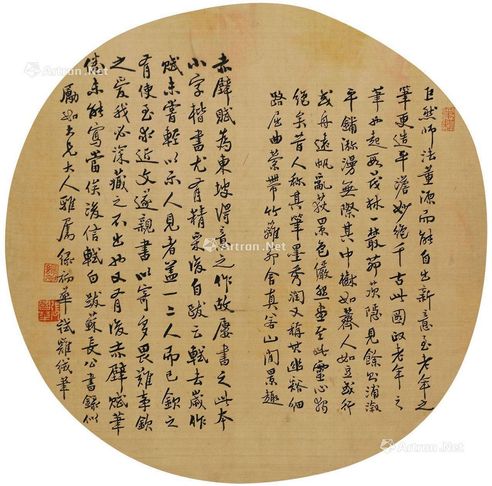 巨然師法董源而能自出新意至老年之
筆更造平澹妙絕千古此圖政老年之
筆也起茂林一叢茆茨隱見餘則浦漵
平鋪渺漫無際其中如薺人如豆或行
或舟遠帆亂荻景色儼然至此靈心
絕矣昔人稱其筆墨秀潤又稱其幽谿細
路屈曲縈帶竹籬茆舍真若山間景趣
赤壁賦為東坡得意之作故屢書之此本
小字楷書尤有精采後自跋云軾去歲作
賦未嘗輕以示人見者蓋一二人而已欽之
有使至求近文遂親書以寄多畏難事欽
之愛我必深藏之不出也又有後赤壁賦筆
倦未能寫當俟後信軾白跋蘇長公書錄似
勵如大兄大人雅屬
Artron.Net
Artron.Net
Artron.Net
Artron.Net